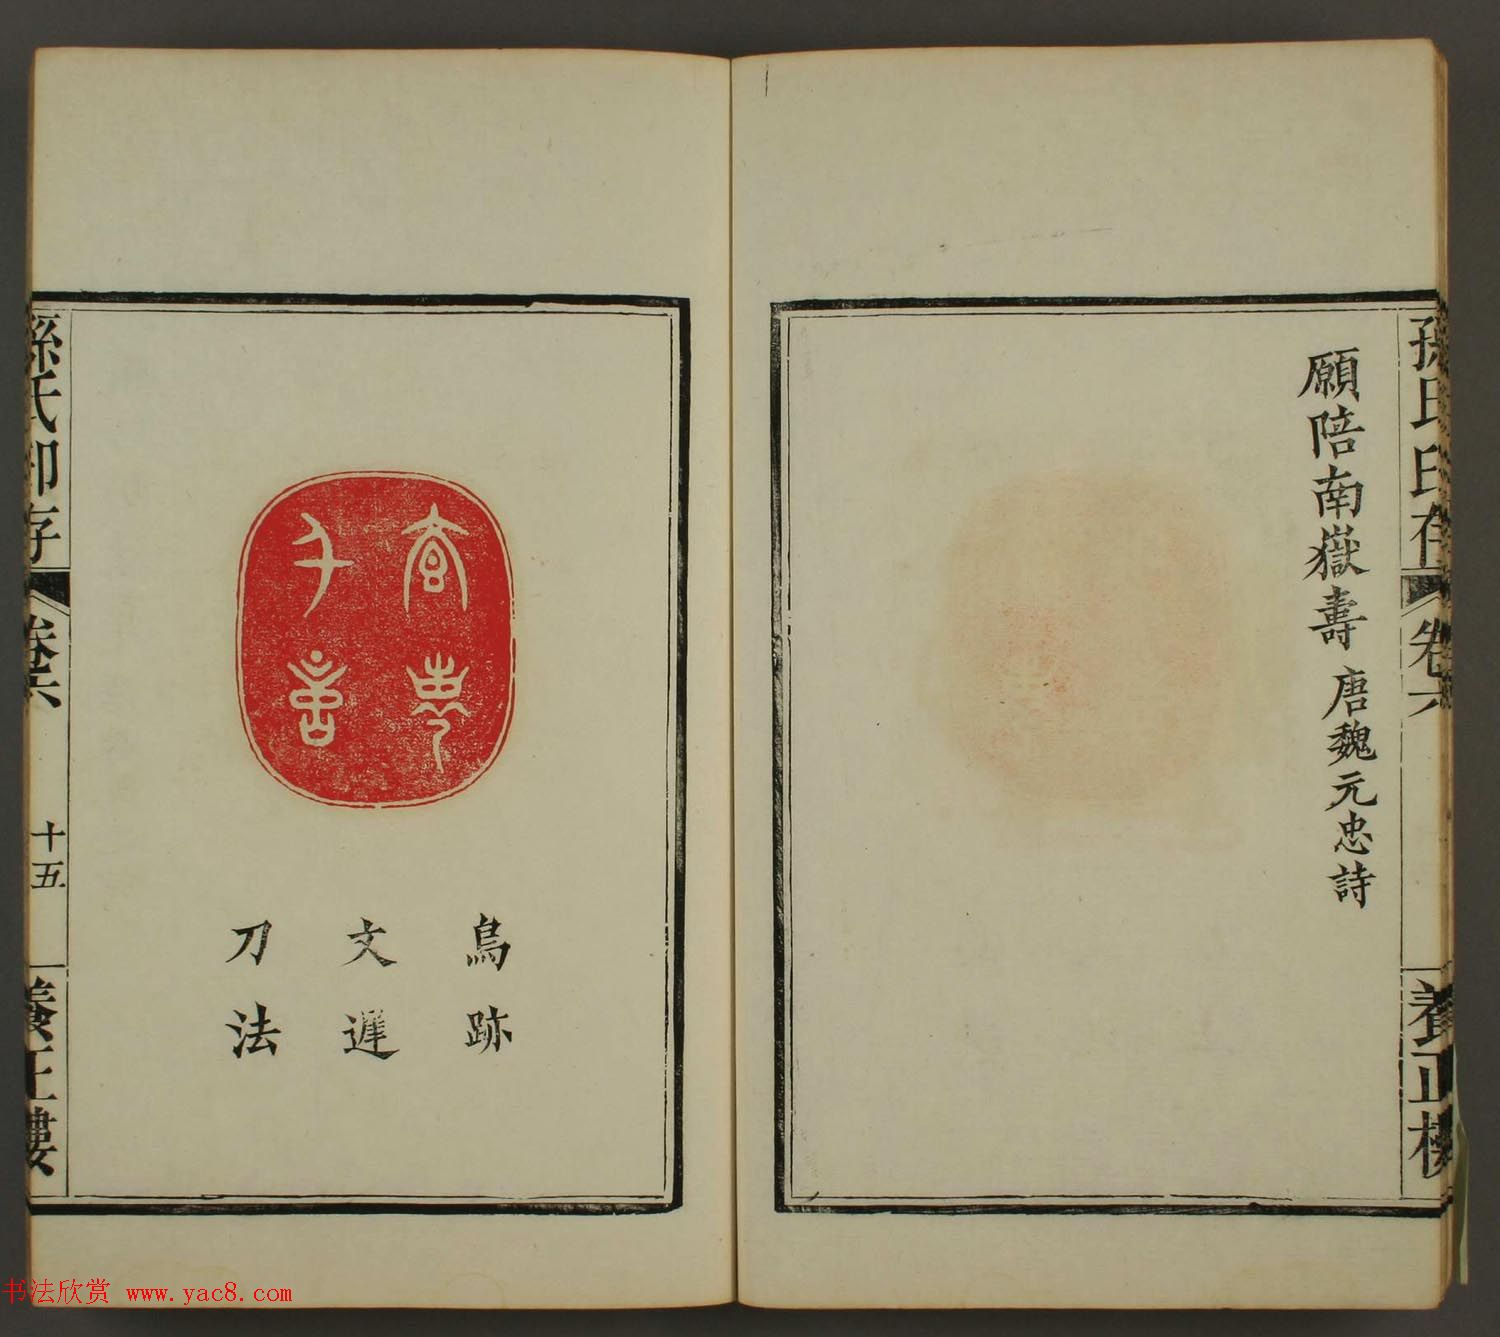 孫氏印存
卷六
養正樓
願陪南嶽壽 唐魏元忠詩
鳥跡
文遲
刀法
孫氏印存
卷六
十五
養正樓
书法欣赏 www.yac8.com